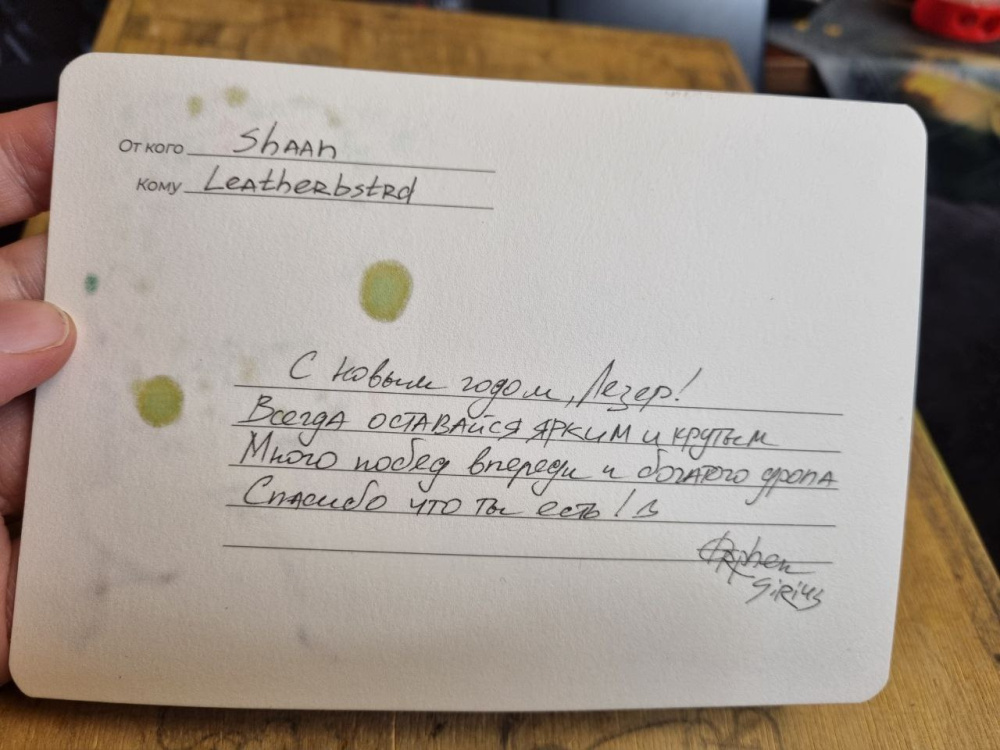 От кого Shaan
Кому Leatherbstrd
С новым годом, Лезер!
Всегда оставайся ярким и крутым
Много побед впереди и богатого дропа
Спасибо что ты есть!
Sirius